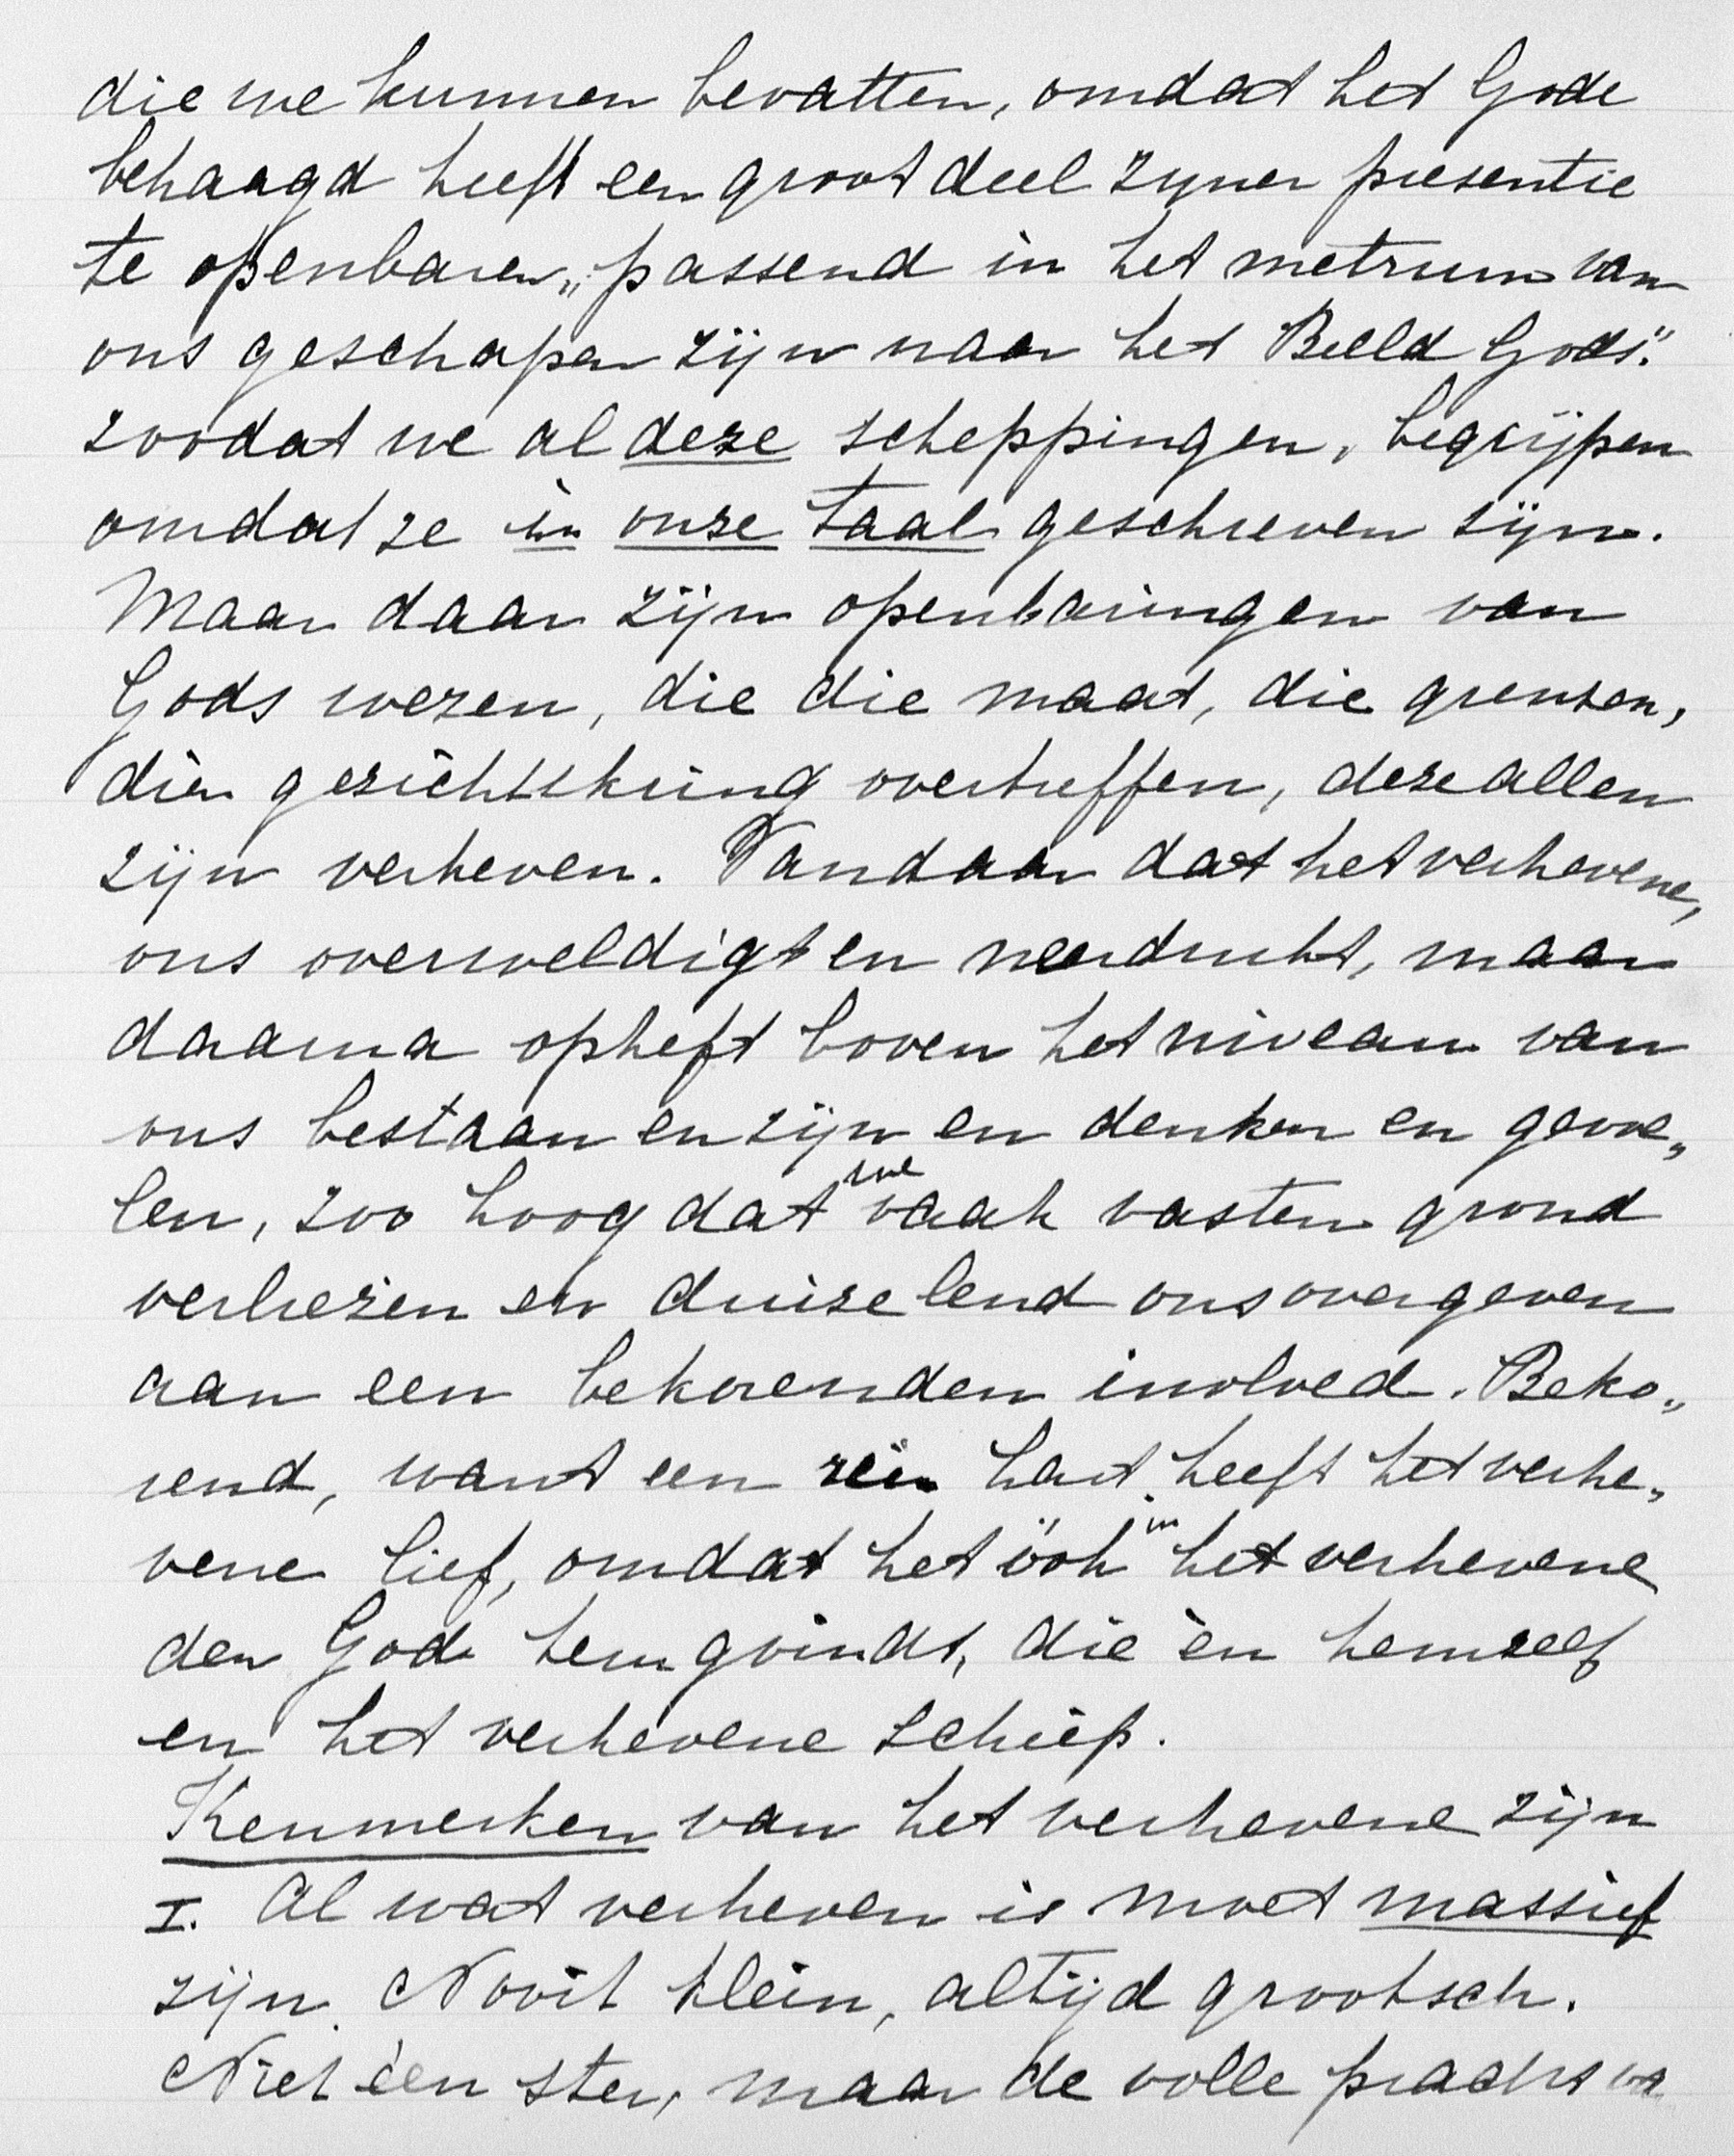 die we kunnen bevatten, omdat het Gode
behaagd heeft een groot deel zyner presentie
te openbaren „passend in het metrum van
ons geschapen zijn naar het Beeld Gods".
zoodat we al deze scheppingen, begrijpen
omdat ze in onze taal geschreven zijn.
Maar daar zijn openbaringen van
Gods wezen, die die maat, die grenzen,
dien gezichtskring overtreffen, deze allen
zijn verheven. Vandaar dat het verhevene,
ons overweldigt en neerdrukt, maar
daarna opheft boven het niveau van
ons bestaan en zijn en denken en gevoe„
len, zoo hoog dat we vaak vasten grond
verliezen en duizelend ons overgeven
aan een bekorenden invloed. Beko„
rend, want een rein hart heeft het verhe„
vene lief, omdat het óók in het verhevene
den God terugvindt, die èn hemzelf
en het verhevene schiep.
Kenmerken van het verhevene zijn
I. Al wat verheven is moet massief
zijn. Nooit klein, altijd grootsch.
Niet één ster, maar de volle pracht va